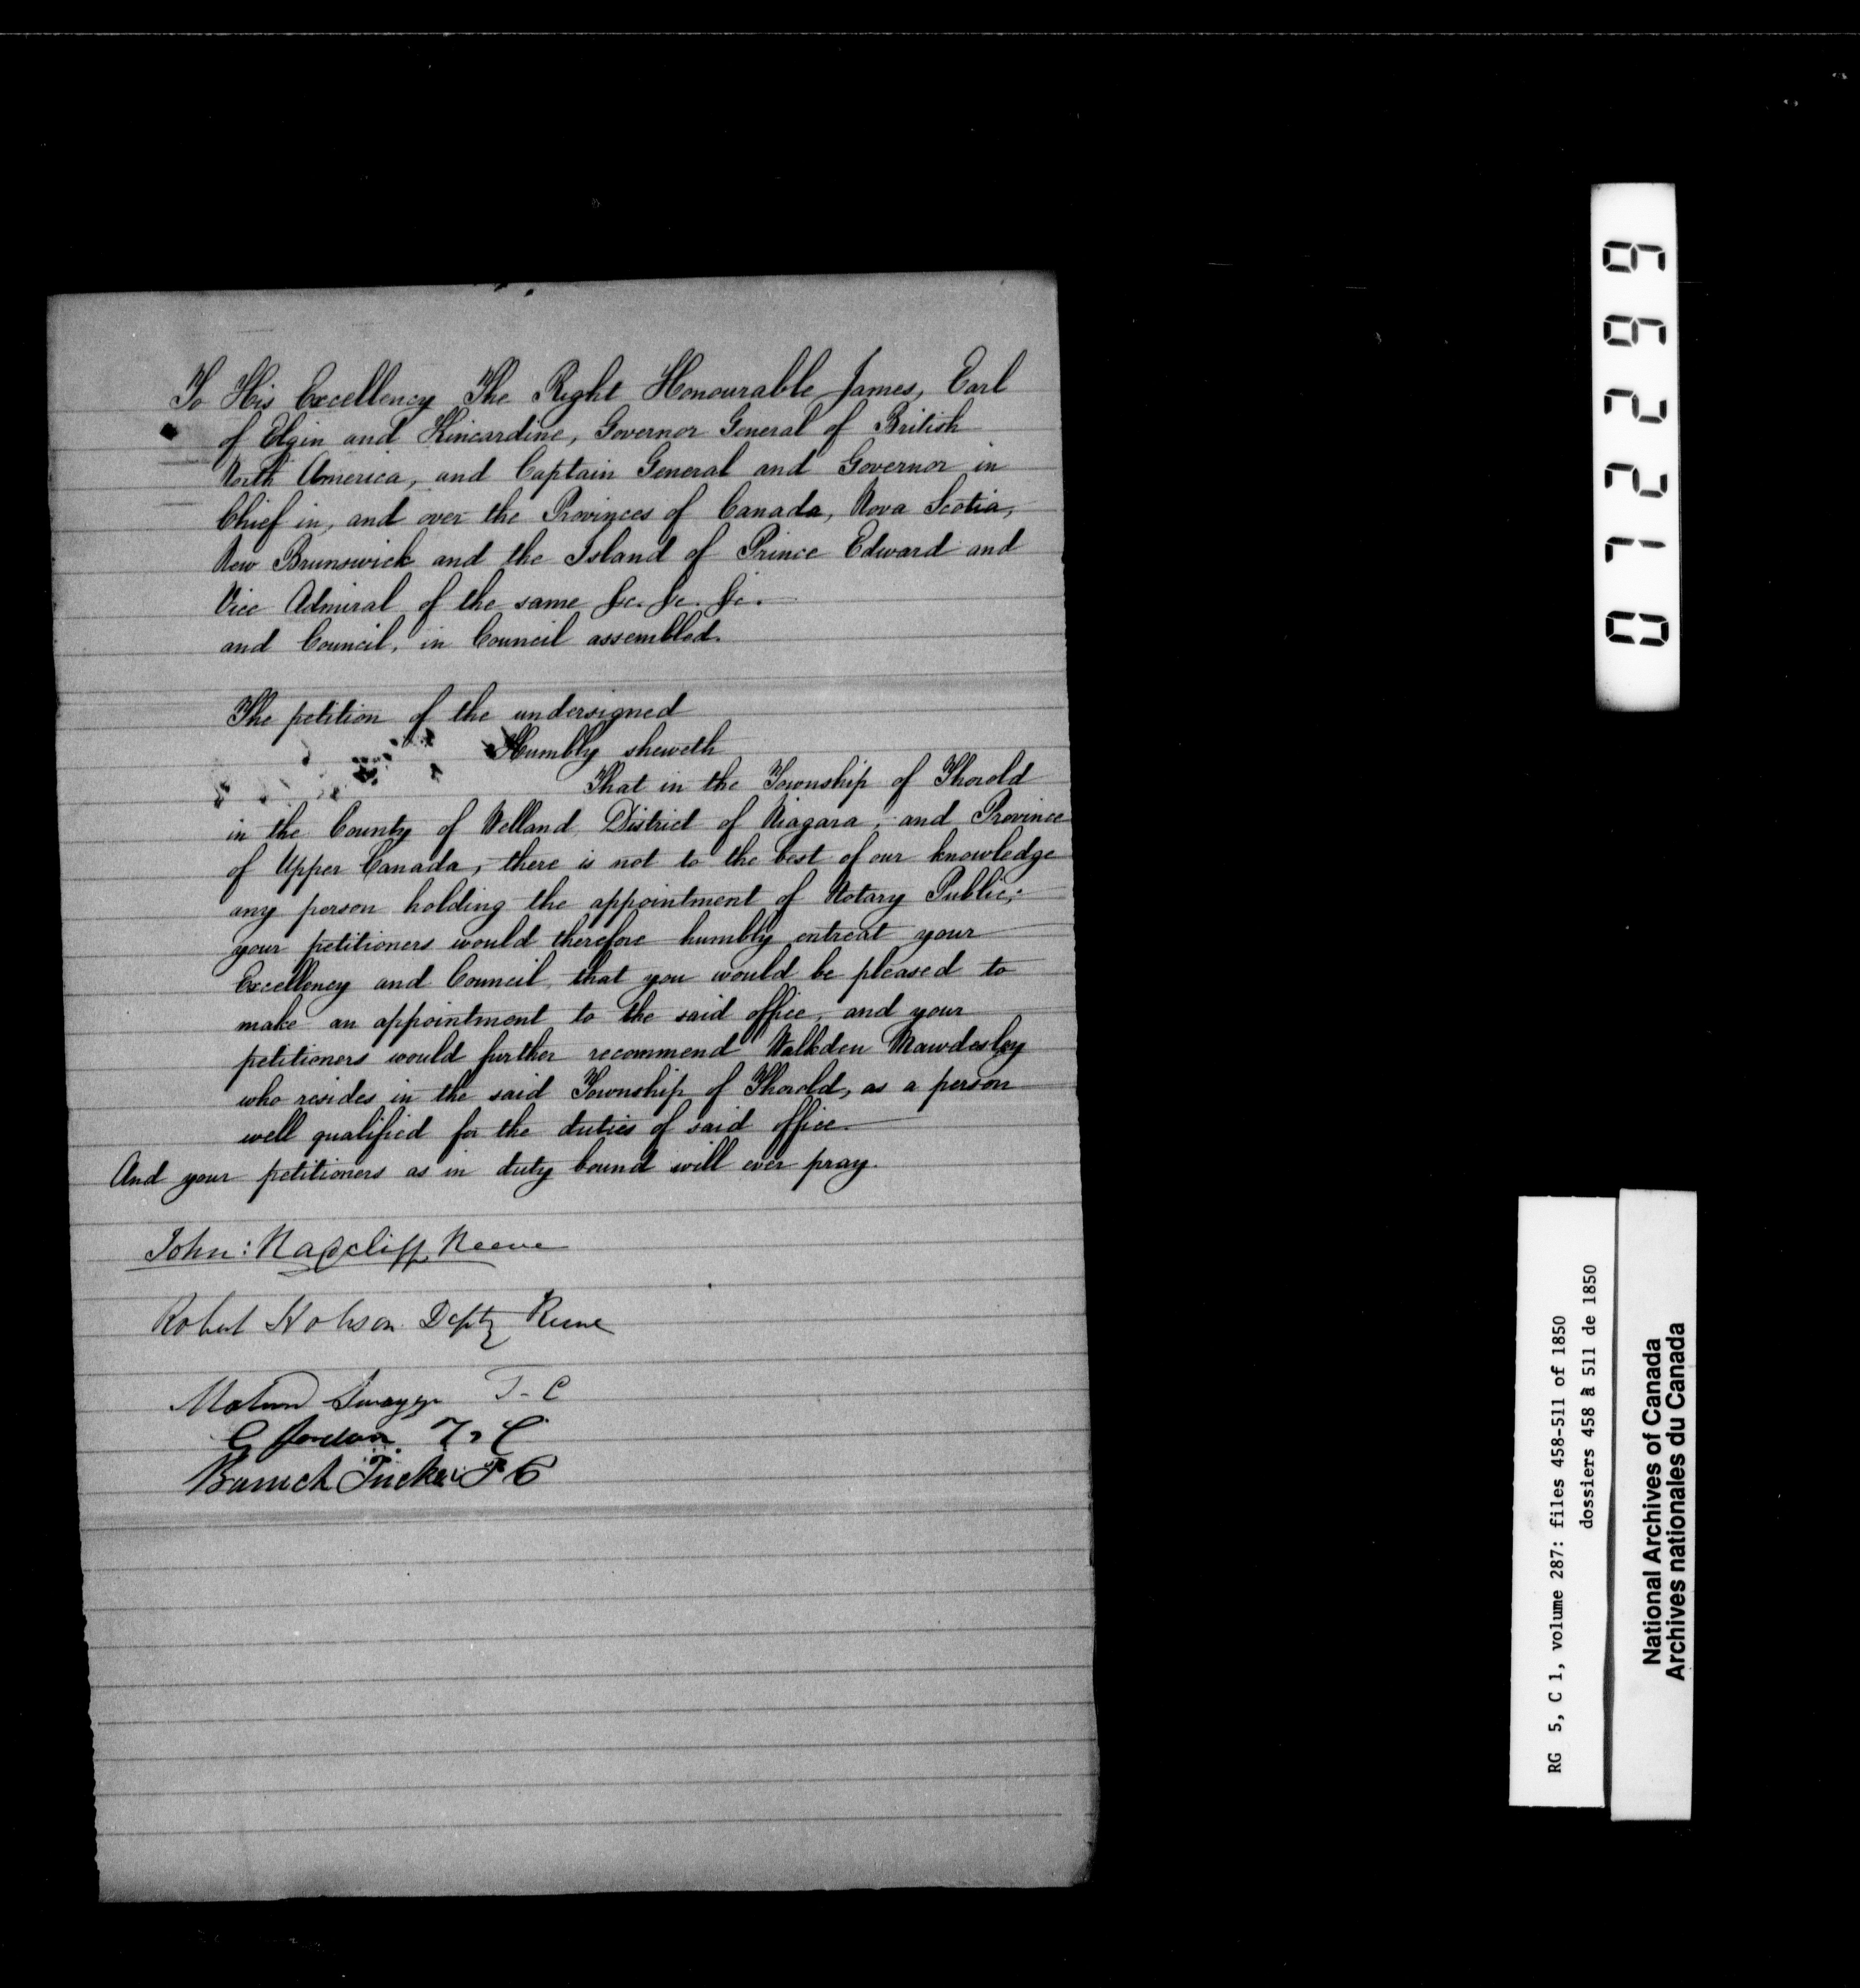 To His Excellency The Right Honourable James, Earl
of Elgin and Kincardine, Governor General of British
North America, and Captain General and Governor in
Chief in, and over the Provinces of Canada, Nova Scotia,
New Brunswick and the Island of Prince Edward and
Vice Admiral of the same &c. &c. &c.
and Council, in Council assembled.
The petition of the undersigned
Humbly sheweth
That in the Township of Thorold
in the County of Welland, District of Niagara, and Province
of Upper Canada, there is not to the best of our knowledge
any person holding the appointment of Notary Public;
your petitioners would therefore humbly entreat your
Excellency and Council, that you would be pleased to
make an appointment to the said office, and your
petitioners would further recommend Walkden Mawdesley
who resides in the said Township of Thorold, as a person
well qualified for the duties of said office.
And your petitioners as in duty bound will ever pray.
John: Radcliff, Reeve
Robert Hobson Depty Reeve
T. C
G Jordan T. C
Baruch Tucker T C
072299
RG 5, C 1, volume 287: files 458-511 of 1850
dossiers 458 à 511 de 1850
National Archives of Canada
Archives nationales du Canada